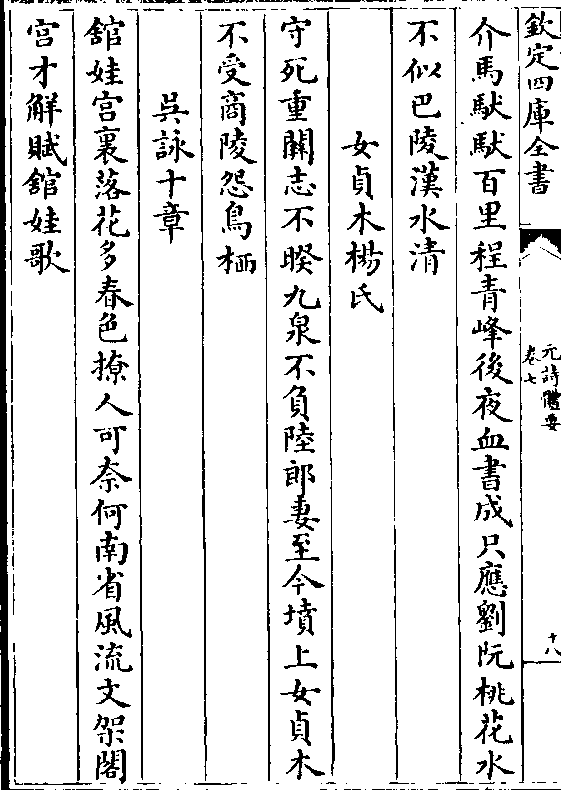 欽定四庫全書
元詩體要
卷七
十八
介馬馱馱百里程青峰後夜血書成只應劉阮桃花水
不似巴陵漢水清
女貞木楊氏
守死重闗志不暌九泉不負陸郎妻至今墳上女貞木
不受商陵怨鳥栖
吳詠十章
舘娃宫裏落花多春色撩人可奈何南省風流文架閣
宫才解賦舘娃歌